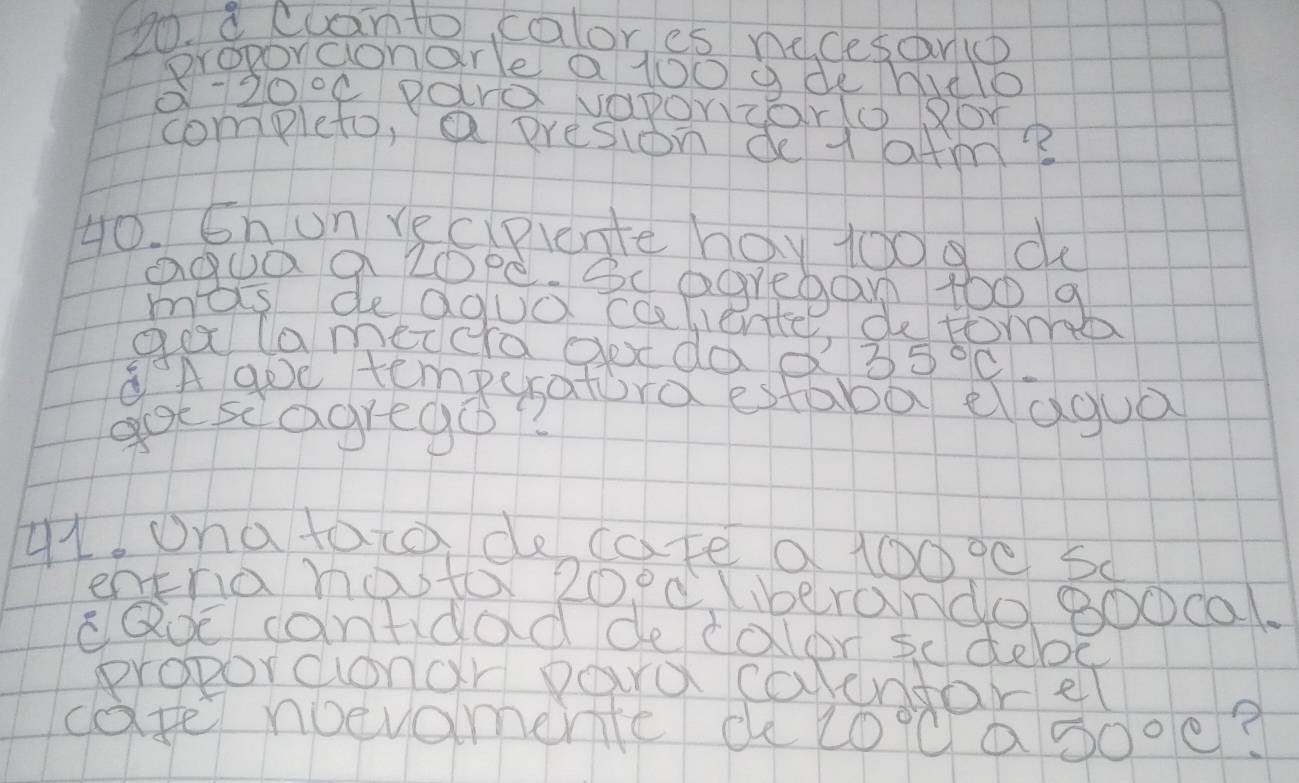 20. ¿ Cuánto calor es necesario
proporcionarle a 100 g de hielo
a -20°C para vaporizarlo por
completo, a presión de 1 atm?
40. En un recipiente hay 100 g de
agua a 20°C. Se agregan 100 g
más de agua caliente, de forma
que la mezcla queda a 35°C.
¿A qué temperatura estaba el agua
que se agregó?
41. Una taza de café a 100°C se
enfría hasta 20°C liberando 800 cal.
¿Qué cantidad de calor se debe
proporcionar para calentar el
café nuevamente de 20°C a 50°C?